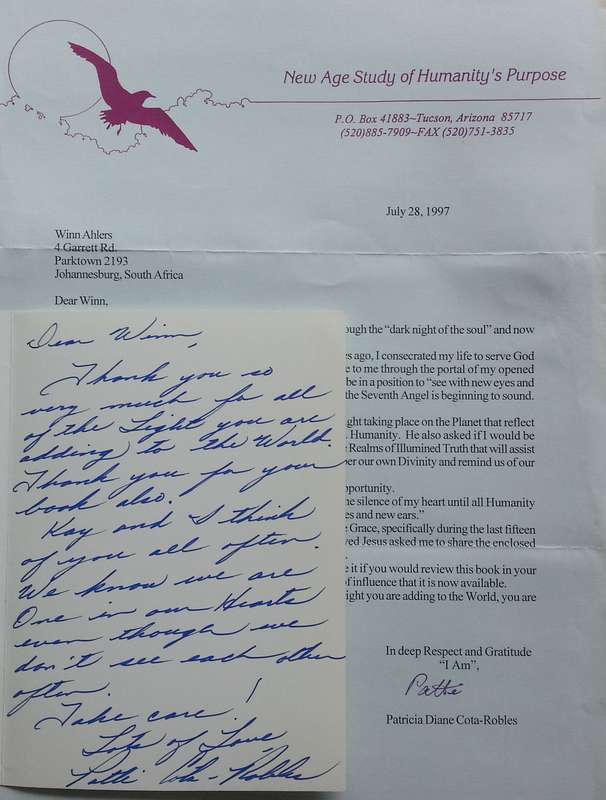 New Age Study of Humanity's Purpose
P.O. Box 41883~Tucson, Arizona 85717
(520)885-7909~FAX (520)751-3835
July 28, 1997
Winn Ahlers
4 Garrett Rd.
Parktown 2193
Johannesburg, South Africa
Dear Winn,
ough the “dark night of the soul” and now
s ago, I consecrated my life to serve God
e to me through the portal of my opened
be in a position to “see with new eyes and
the Seventh Angel is beginning to sound.
ght taking place on the Planet that reflect
. Humanity. He also asked if I would be
Realms of Illumined Truth that will assist
er our own Divinity and remind us of our
pportunity.
e silence of my heart until all Humanity
es and new ears.”
Grace, specifically during the last fifteen
ved Jesus asked me to share the enclosed
e it if you would review this book in your
of influence that it is now available.
ight you are adding to the World, you are
In deep Respect and Gratitude
“I Am”,
Patti
Patricia Diane Cota-Robles
Dear Winn,
Thank you so
very much for all
of the Light you are
adding to the World.
Thank you for your
book also.
Kay and I think
of you all often.
We know we are
One in our Hearts
even though we
don't see each other
often.
Take care!
Lots of Love,
Patti Cota-Robles